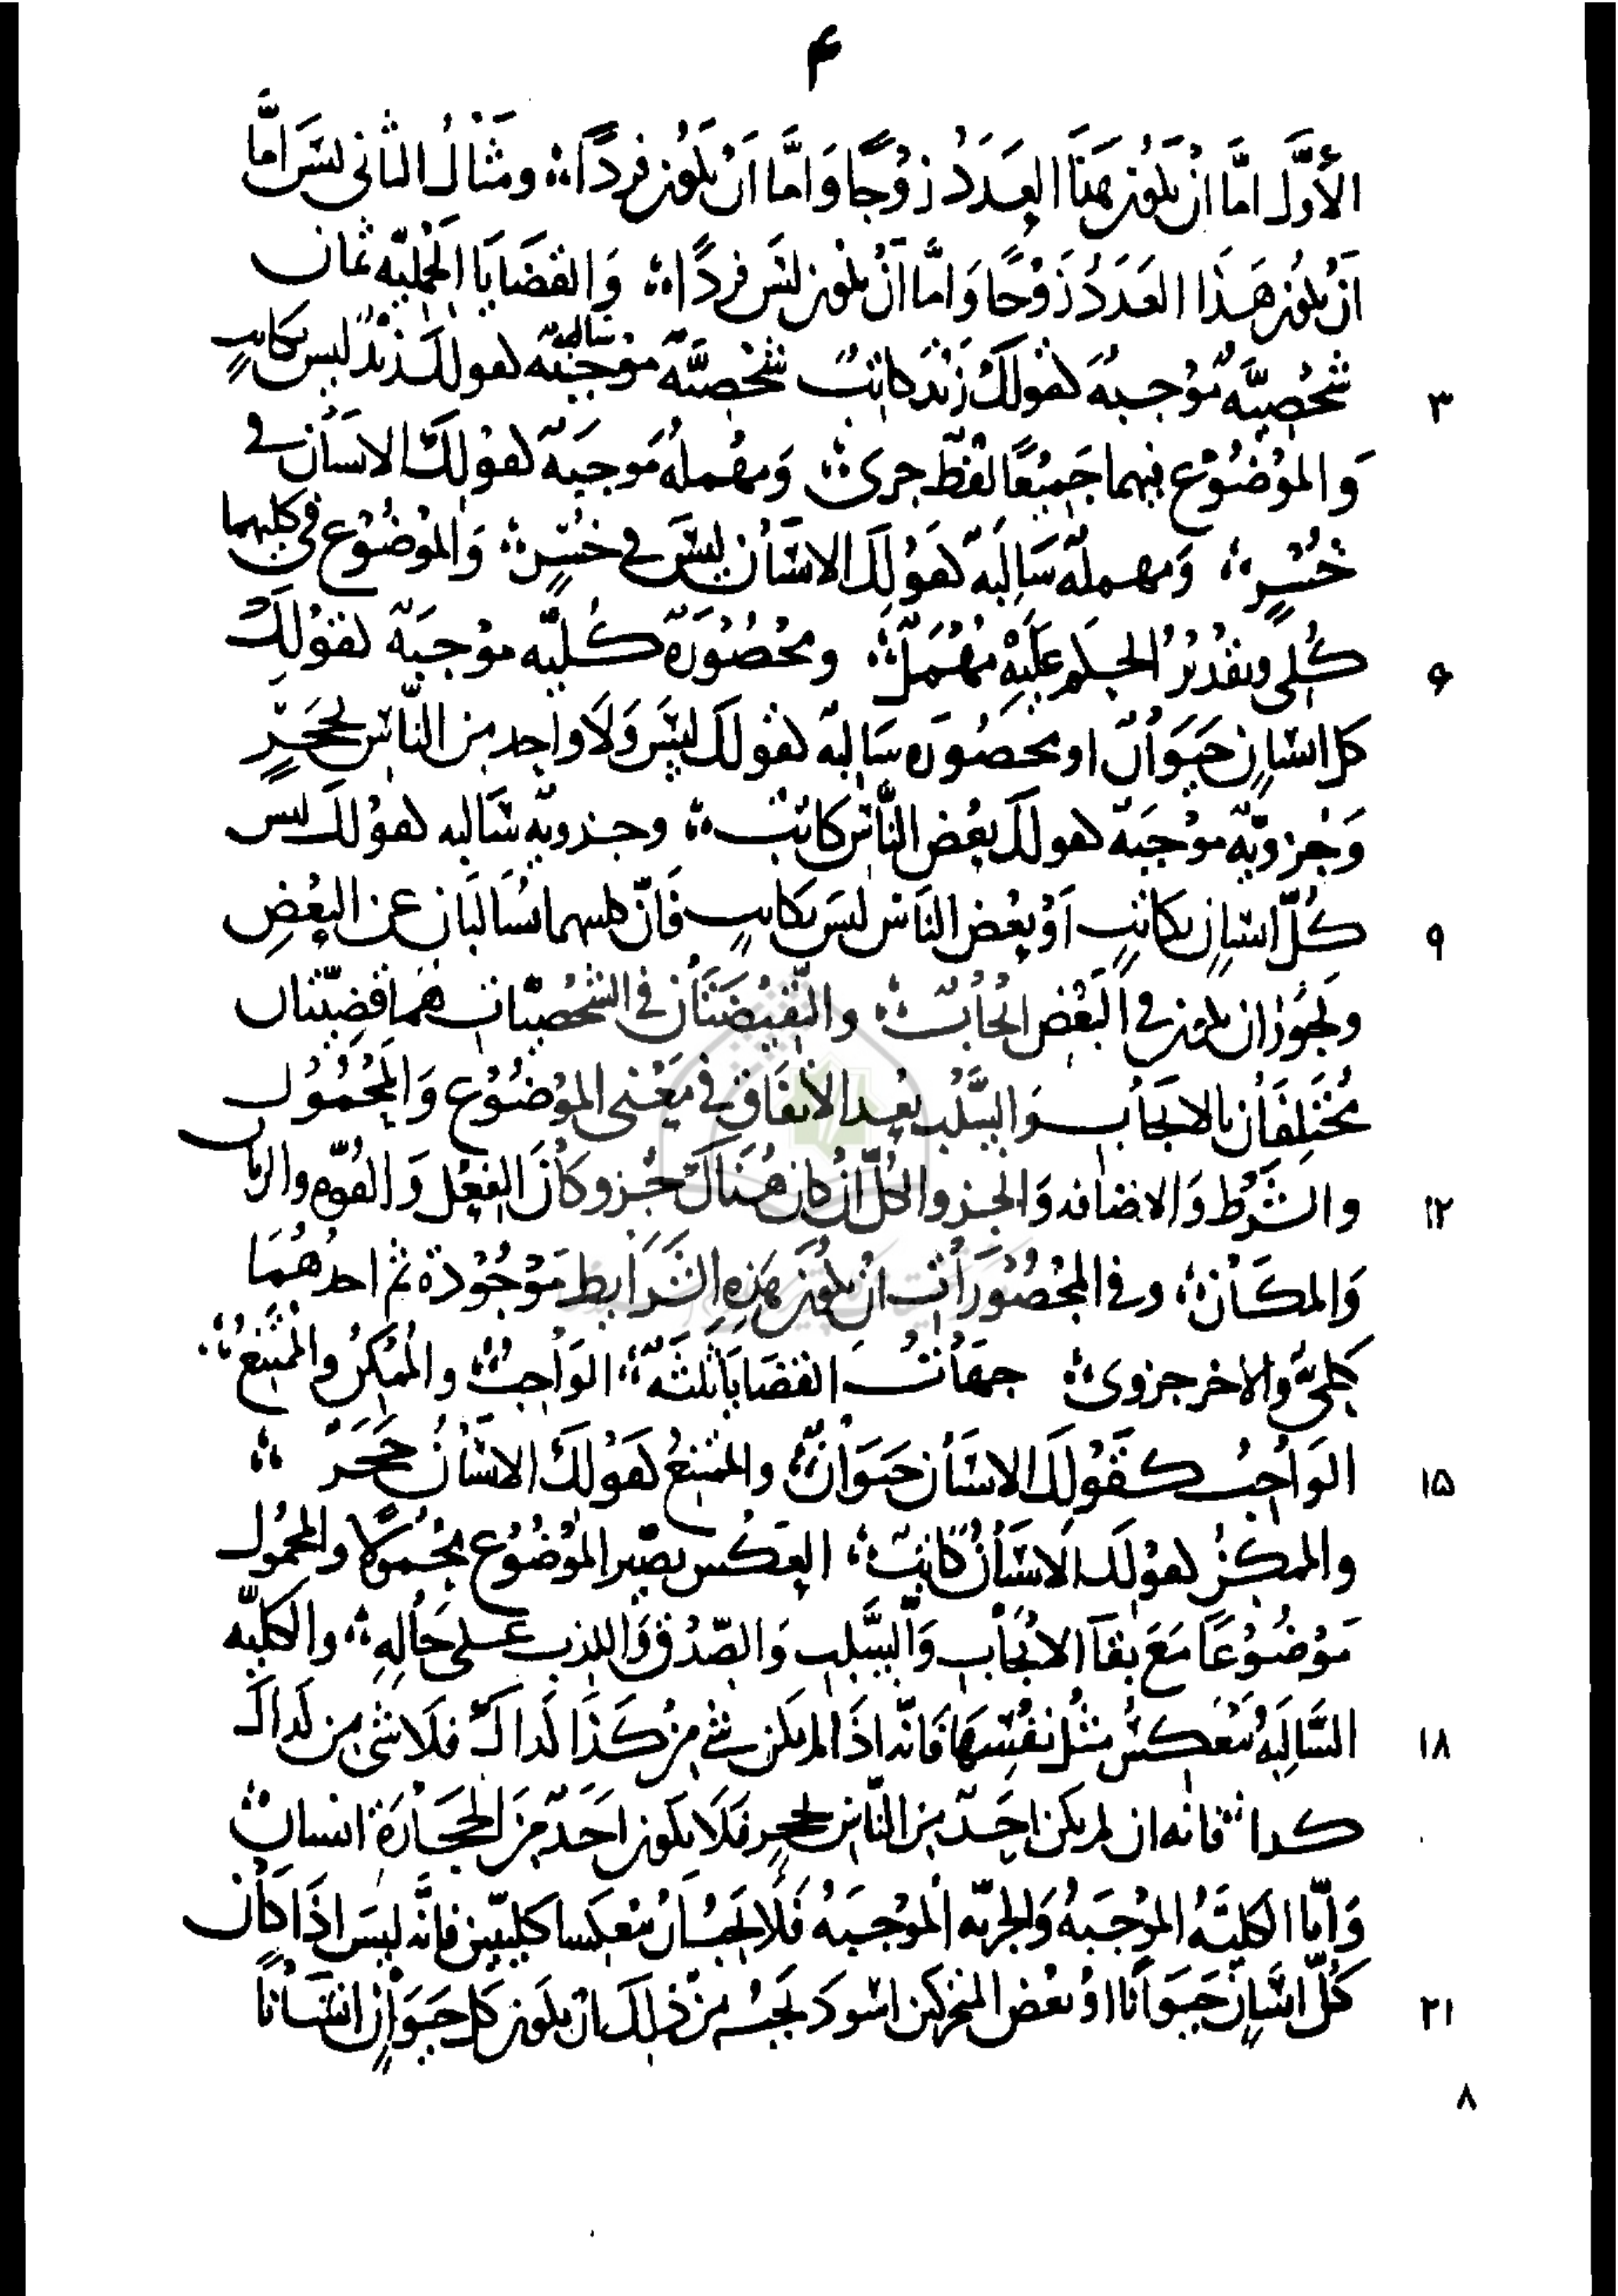 ۴
الأوّل امّا انْ يكون هذا العدَدُ زوْجًا وَامَّا اَنْ يكون فردًا ؛ ومثالُ الثانى ليسَ امَّا
اَنْ يكون هَذا العَدَدُ زَوْجًا وَامَّا اَنْ يكون ليسَ فردًا ؛ وَالقضَايَا الحمليّه ثمان
شخصِيَّه مُوْجبهٌ كقولكَ زَيْد كاتبٌ شخصيَّه سالبة كقولكَ زيْدٌ ليس بكاتبٍ
۳
وَالموْضُوْع فيهما جَميْعًا لفظ جزى ؛ وَمهْملهٌ مَوجبَةٌ كقوْلكَ الانسَان فى
خُسْرٍ ؛ وَمهملهٌ سَالبَه كقَوْلكَ الانسَان ليسَ فى خُسْرٍ ؛ وَالموْضُوْع فى كليهما
كُلى وتقدْيرُ الحكم عَلَيْهِ مُهْمَل ؛ ومحْصُوْرَة كُليّه موْجبَة كقوْلِكَ
۶
كل انسَانٍ حَيَوَانٌ او محْصُورَه سَالبَه كقولكَ ليسَ وَلَا وَاحِد من النَّاس بحَجَرٍ
وَجُزويّه موْجبَة كقولكَ بعْض النَّاس كاتب ؛ وجزويه سَالبه كقوْلكَ ليس
كُلّ انسَانٍ بكاتبٍ اَوْ بعْض النَاس ليسَ بكاتبٍ فَانّ كليهما يُسَالبَان عن البعْضِ
۹
وَيجوزُ ان يكون فى البَعْض ايجابٌ ؛ والنّقيْضَتَان فى الشخصِيّات هُمَا قضِيّتان
تخْتَلِفَان بالايجَاب وَالسَّلب بعْد الاتفَاق فى مَعْنى الموْضُوْع وَالمحْمُوْل
والشَّرْط وَالاضَافه وَالجزو والكلّ انْ كان هُنَاكَ جُزو وكَانَ الفِعْل وَالقُوّه والزمان
۱۲
وَالمكَان ؛ وفى المحْصُوْرَات انْ يكون هذِهِ الشَرَايط مَوْجُوْدة ثم احدهُمَا
كليٌّ والاخر جزوى ؛ جهَاتُ القضَايَا ثلثَه ؛ الوَاجبُ ؛ والمُمكِنُ والممْتنِعُ ؛
الوَاجبُ كقَوْلِكَ الانسَان حَيَوَانٌ ؛ والممتنعُ كقَوْلكَ الانسَانُ حَجَر ؛
۱۵
والممكنُ كقوْلكَ الانسَانُ كاتِبٌ ؛ العكْس تصْيير الموْضُوْع محْمُولًا والمحمُول
مَوْضُوْعًا مَعَ بقَآ الايْجَاب وَالسَّلب وَالصّدْق وَالكذب على حَالِهِ ؛ والكليّه
السَّالبَهُ تنْعَكسُ مثْل نفْسِهَا فَانّه اذَا لم يكن شى مِنْ كَذَا كَذاكَ فلَا شى من كَذاكَ
۱۸
كذا ؛ فانه ان لم يكن احَدٌ منَ النّاس بحجرٍ فَلَا يكون احَدٌ مِنَ الحجَارَة انسان ؛
وَامّا الكليَّهُ الموْجَبهُ وَالجزيّه الموْجبَهُ فَلَا يَجبُ اَنْ ينْعكسا كليّتين فانَّه ليسَ اذَا كَان
كُلّ انسَانٍ حَيَوَانًا اوْ بعْض المتحركين اسْود يَجبُ مِنْ ذلكَ انْ يكون كل حَيَوَانٍ انسَانًا
۲۱
۸